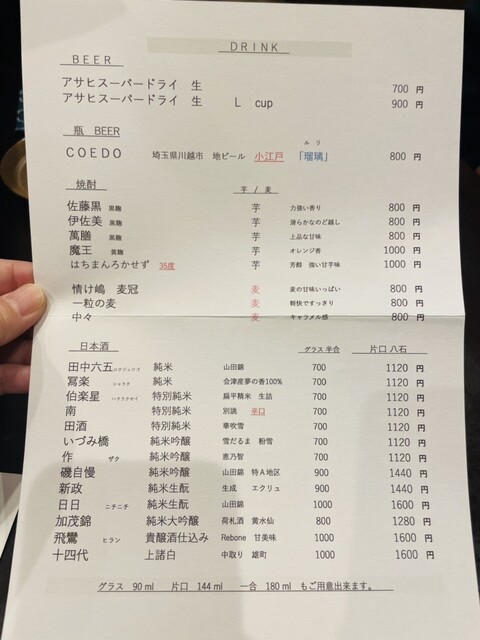 DRINK
BEER
アサヒスーパードライ 生 700 円
アサヒスーパードライ 生 L cup 900 円
瓶 BEER
ルリ
COEDO 埼玉県川越市 地ビール 小江戸 「瑠璃」 800 円
焼酎 芋 / 麦
佐藤黒 黒麹 芋 力強い香り 800 円
伊佐美 黒麹 芋 滑らかなのど越し 800 円
萬膳 黒麹 芋 上品な甘味 800 円
魔王 黄麹 芋 オレンジ香 1000 円
はちまんろかせず 35度 芋 芳醇 強い甘芋味 1000 円
情け嶋 麦冠 麦 麦の甘味いっぱい 800 円
一粒の麦 麦 軽快ですっきり 800 円
中々 麦 キャラメル感 800 円
日本酒 グラス 半合 片口 八石
田中六五 純米 山田錦 700 1120 円
冩楽 シャラク 純米 会津産夢の香100% 700 1120 円
伯楽星 ハクラクセイ 特別純米 扁平精米 生詰 700 1120 円
南 特別純米 別誂 辛口 700 1120 円
田酒 特別純米 華吹雪 700 1120 円
いづみ橋 純米吟醸 雪だるま 粉雪 700 1120 円
作 ザク 純米吟醸 恵乃智 700 1120 円
磯自慢 純米吟醸 山田錦 特A地区 900 1440 円
新政 純米生酛 生成 エクリュ 900 1440 円
日日 ニチニチ 純米生酛 山田錦 1000 1600 円
加茂錦 純米大吟醸 荷札酒 黄水仙 800 1280 円
飛鸞 ヒラン 貴醸酒仕込み Rebone 甘美味 1000 1600 円
十四代 上諸白 中取り 雄町 1000 1600 円
グラス 90 ml 片口 144 ml 一合 180 ml もご用意出来ます。